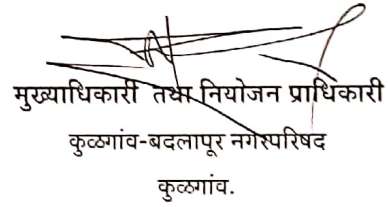 मुख्याधिकारी तथा नियोजन प्राधिकारी
कुळगांव-बदलापूर नगरपरिषद
कुळगांव.